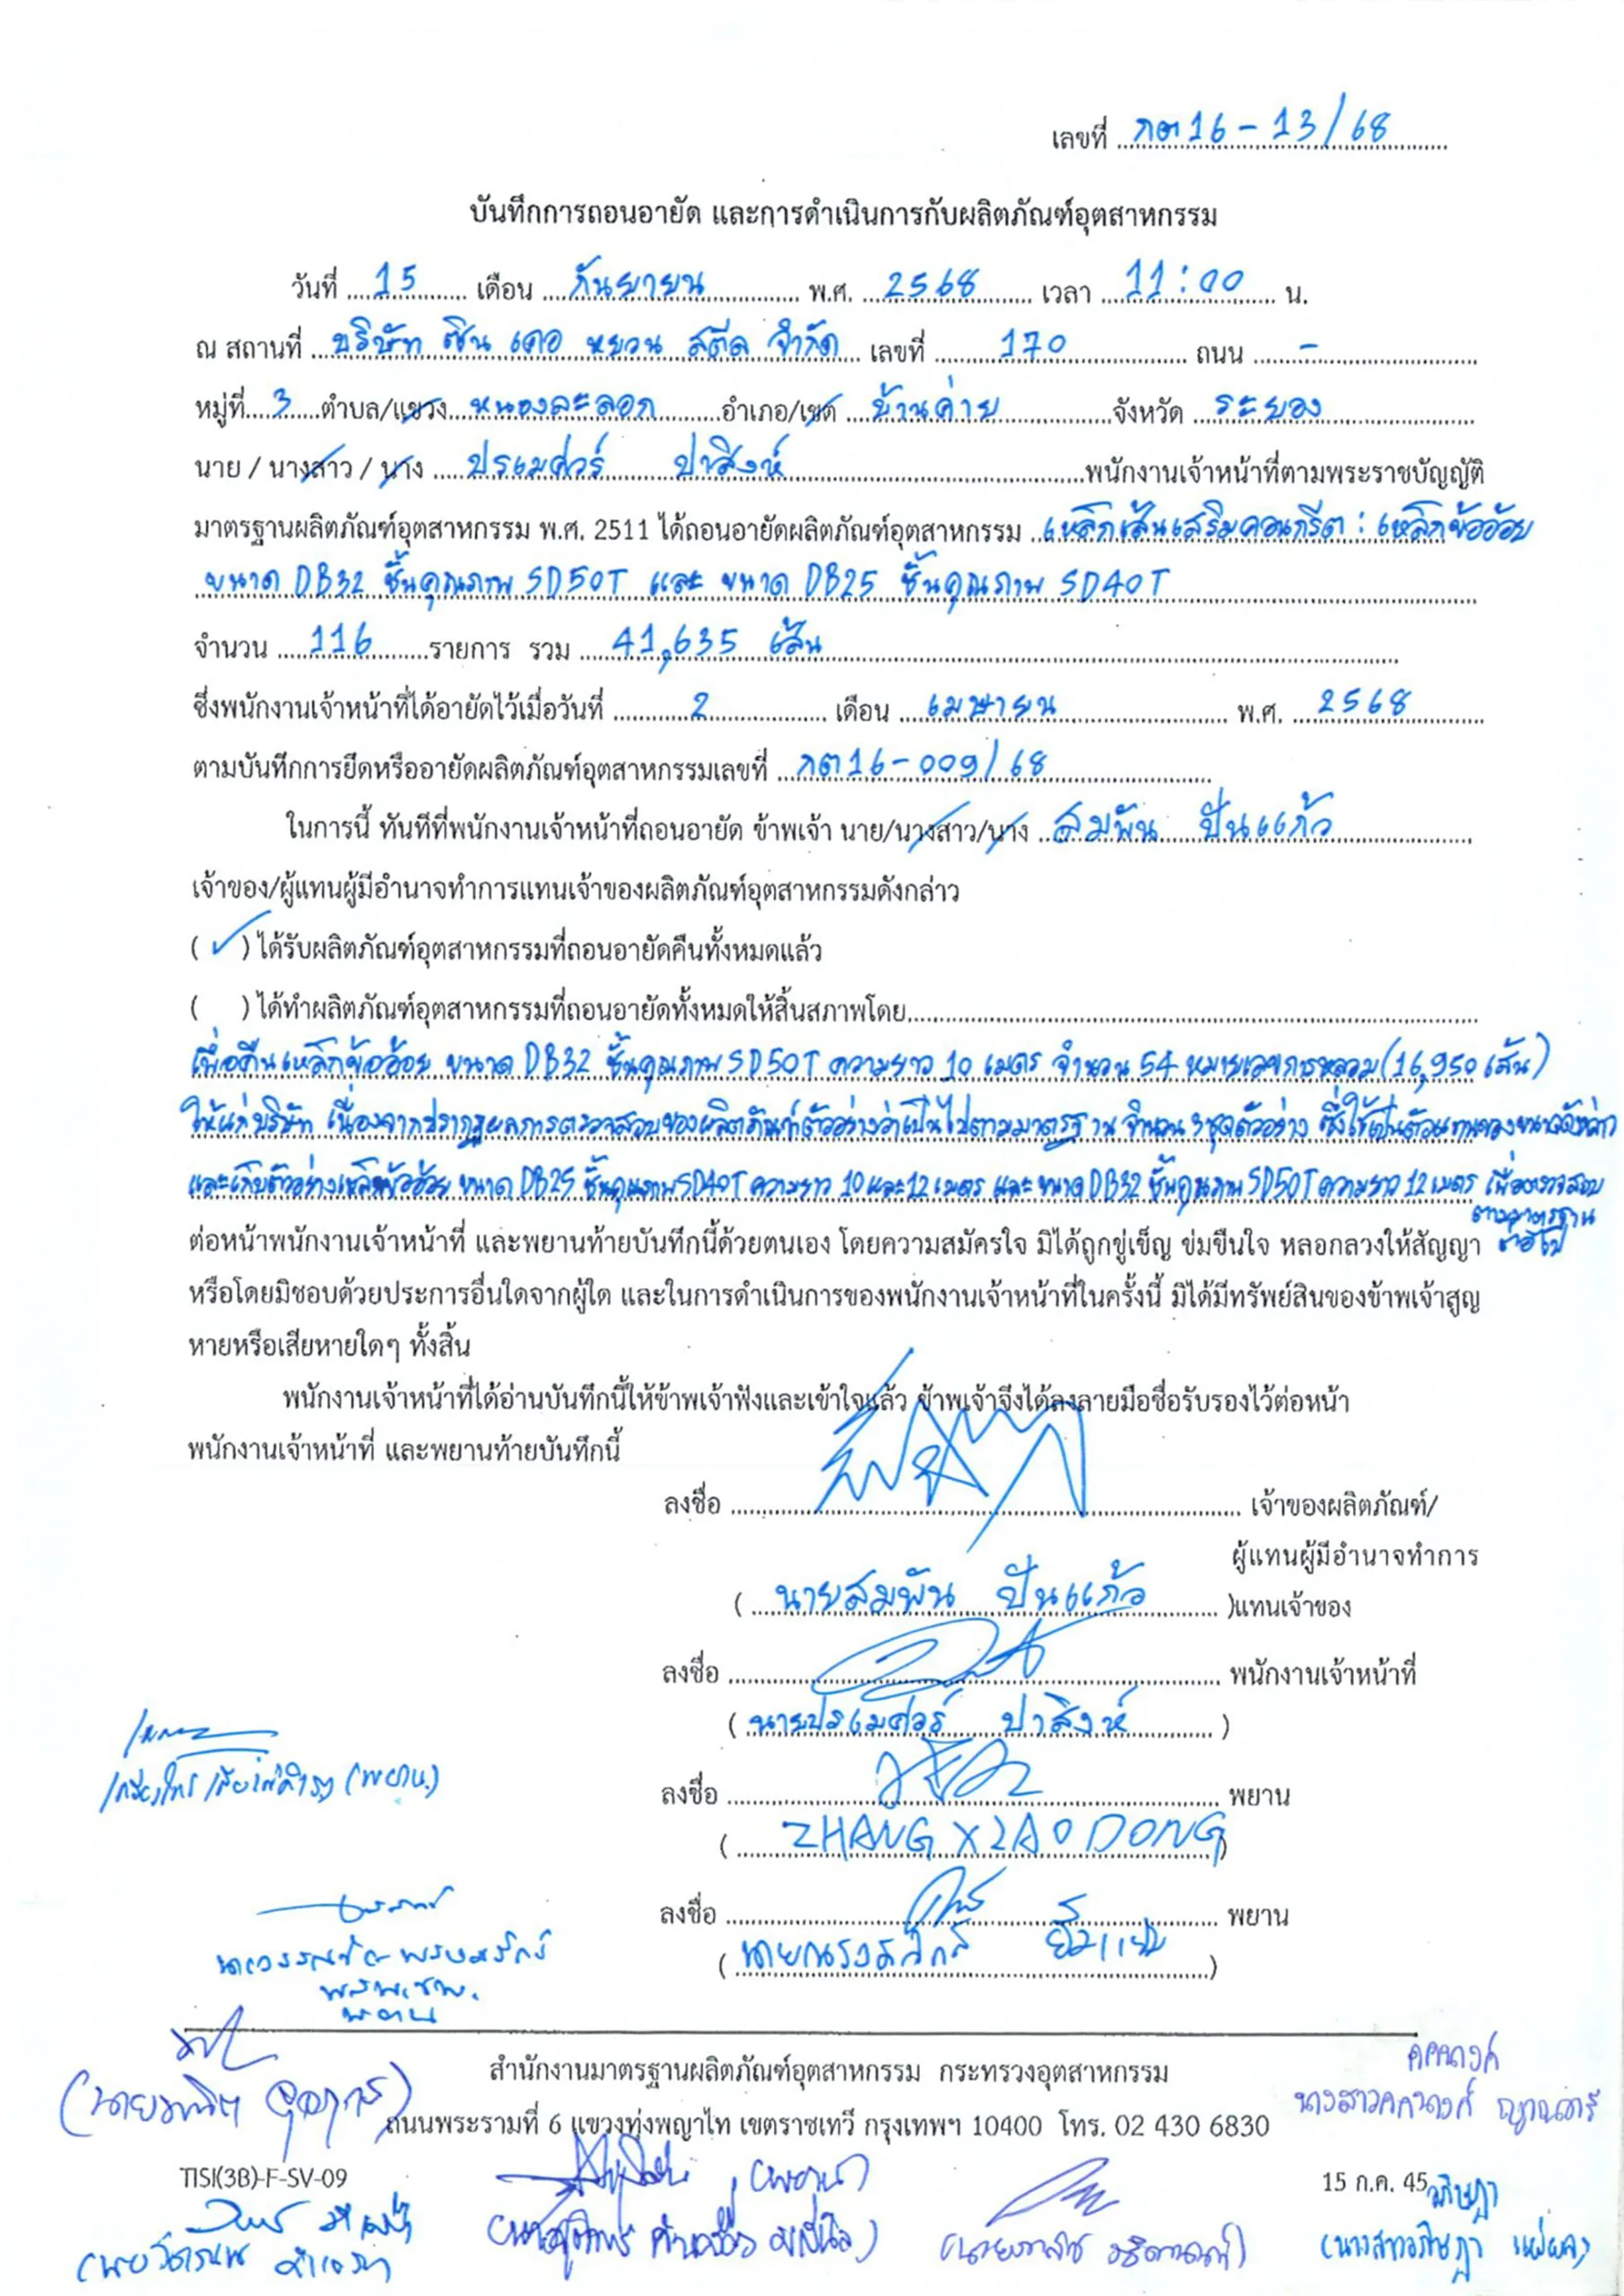 เลขที่ กต16-13/68
บันทึกการถอนอายัด และการดำเนินการกับผลิตภัณฑ์อุตสาหกรรม
วันที่ 15 เดือน กันยายน พ.ศ. 2568 เวลา 11:00 น.
ณ สถานที่ บริษัท ซิน เคอ หยวน สตีล จำกัด เลขที่ 170 ถนน -
หมู่ที่ 3 ตำบล/แขวง หนองละลอก อำเภอ/เขต บ้านค่าย จังหวัด ระยอง
นาย / นางสาว / นาง ปรเมศวร์ ปาสิงห์ พนักงานเจ้าหน้าที่ตามพระราชบัญญัติ
มาตรฐานผลิตภัณฑ์อุตสาหกรรม พ.ศ. 2511 ได้ถอนอายัดผลิตภัณฑ์อุตสาหกรรม เหล็กเส้นเสริมคอนกรีต : เหล็กข้ออ้อย
ขนาด DB32 ชั้นคุณภาพ SD50T และ ขนาด DB25 ชั้นคุณภาพ SD40T
จำนวน 116 รายการ รวม 41,635 เส้น
ซึ่งพนักงานเจ้าหน้าที่ได้อายัดไว้เมื่อวันที่ 2 เดือน เมษายน พ.ศ. 2568
ตามบันทึกการยึดหรืออายัดผลิตภัณฑ์อุตสาหกรรมเลขที่ กต16-009/68
ในการนี้ ทันทีที่พนักงานเจ้าหน้าที่ถอนอายัด ข้าพเจ้า นาย/นางสาว/นาง สมพัน ปันแก้ว
เจ้าของ/ผู้แทนผู้มีอำนาจทำการแทนเจ้าของผลิตภัณฑ์อุตสาหกรรมดังกล่าว
( ✓ ) ได้รับผลิตภัณฑ์อุตสาหกรรมที่ถอนอายัดคืนทั้งหมดแล้ว
( ) ได้ทำผลิตภัณฑ์อุตสาหกรรมที่ถอนอายัดทั้งหมดให้สิ้นสภาพโดย
เพื่อคืนเหล็กข้ออ้อย ขนาด DB32 ชั้นคุณภาพ SD50T ความยาว 10 เมตร จำนวน 54 หมายเลขการหลอม (16,950 เส้น)
ให้แก่บริษัท เนื่องจากปรากฏผลการตรวจสอบของผลิตภัณฑ์ตัวอย่างว่าเป็นไปตามมาตรฐาน จำนวน 3 ชุดตัวอย่าง ซึ่งใช้เป็นตัวแทนของขนาดดังกล่าว
และเก็บตัวอย่างเหล็กข้ออ้อย ขนาด DB25 ชั้นคุณภาพ SD40T ความยาว 10 และ 12 เมตร และ ขนาด DB32 ชั้นคุณภาพ SD50T ความยาว 12 เมตร เพื่อตรวจสอบ
ตามมาตรฐาน
ต่อไป
ต่อหน้าพนักงานเจ้าหน้าที่ และพยานท้ายบันทึกนี้ด้วยตนเอง โดยความสมัครใจ มิได้ถูกขู่เข็ญ ข่มขืนใจ หลอกลวงให้สัญญา
หรือโดยมิชอบด้วยประการอื่นใดจากผู้ใด และในการดำเนินการของพนักงานเจ้าหน้าที่ในครั้งนี้ มิได้มีทรัพย์สินของข้าพเจ้าสูญ
หายหรือเสียหายใดๆ ทั้งสิ้น
พนักงานเจ้าหน้าที่ได้อ่านบันทึกนี้ให้ข้าพเจ้าฟังและเข้าใจแล้ว ข้าพเจ้าจึงได้ลงลายมือชื่อรับรองไว้ต่อหน้า
พนักงานเจ้าหน้าที่ และพยานท้ายบันทึกนี้
ลงชื่อ เจ้าของผลิตภัณฑ์/
ผู้แทนผู้มีอำนาจทำการ
( นายสมพัน ปันแก้ว )แทนเจ้าของ
ลงชื่อ พนักงานเจ้าหน้าที่
( นายปรเมศวร์ ปาสิงห์ )
(พยาน)
ลงชื่อ พยาน
( ZHANG XIAO DONG )
ลงชื่อ พยาน
( นายณรงค์ศักดิ์ )
พยาน
สำนักงานมาตรฐานผลิตภัณฑ์อุตสาหกรรม กระทรวงอุตสาหกรรม
ถนนพระรามที่ 6 แขวงทุ่งพญาไท เขตราชเทวี กรุงเทพฯ 10400 โทร. 02 430 6830
TISI(3B)-F-SV-09
(พยาน)
15 ก.ค. 45